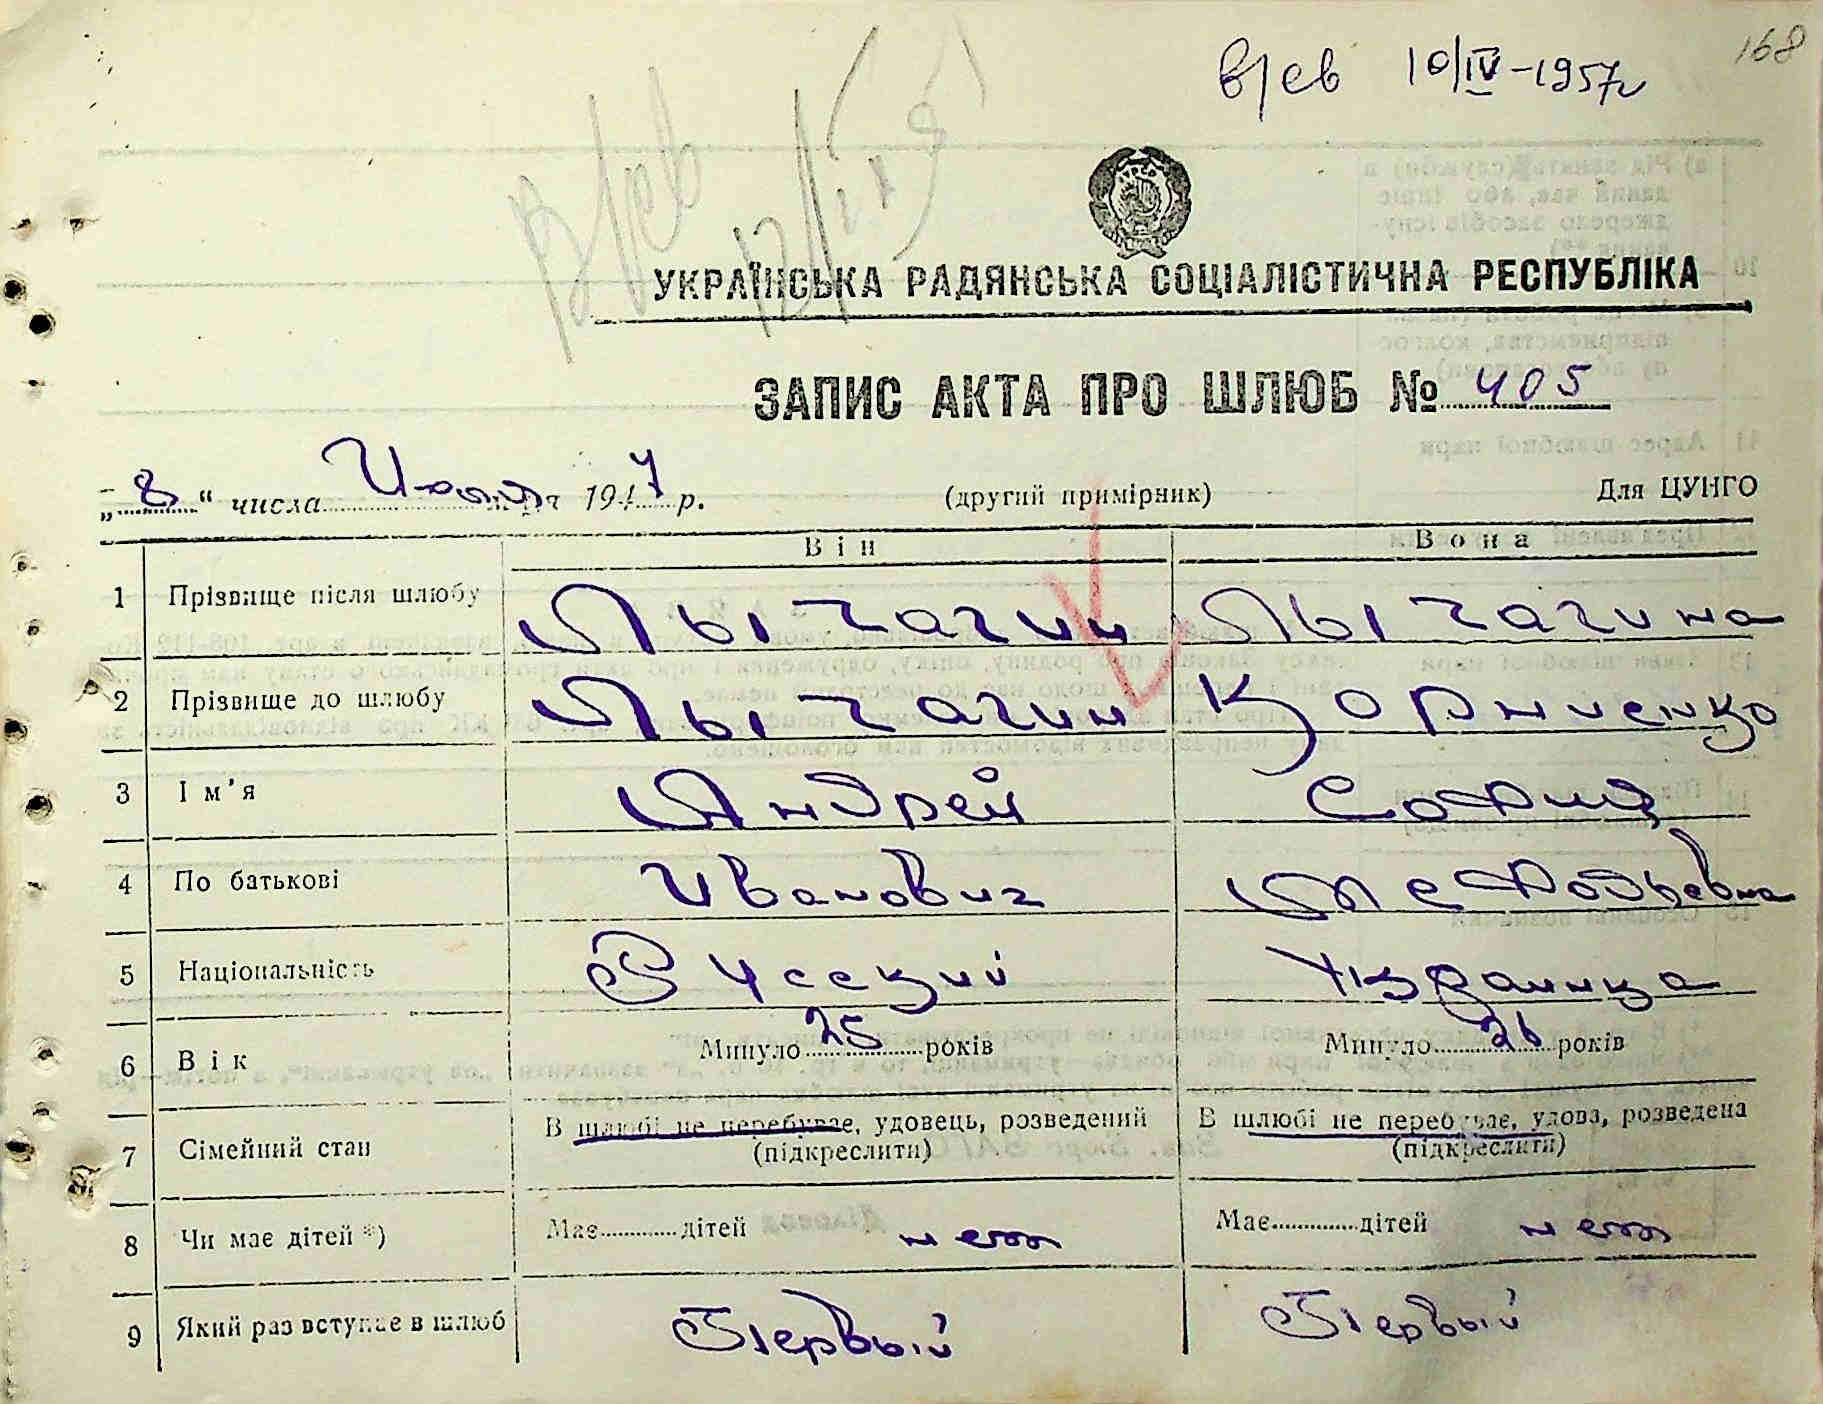 168
в/св 10/IV-1957г
в/св
УКРАЇНСЬКА РАДЯНСЬКА СОЦІАЛІСТИЧНА РЕСПУБЛІКА
ЗАПИС АКТА ПРО ШЛЮБ № 405
„8“ числа Июля 1947 р. (другий примірник) Для ЦУНГО
Він Вона
1 Прізвище після шлюбу Лычагин Лычагина
2 Прізвище до шлюбу Лычагин Корниенко
3 Ім'я Андрей София
4 По батькові Иванович Мефодьевна
5 Національність Русский Украинка
6 Вік Минуло 25 років Минуло 26 років
7 Сімейний стан В шлюбі не перебуває, удовець, розведений (підкреслити) В шлюбі не перебуває, удова, розведена (підкреслити)
8 Чи має дітей *) Має дітей нет Має дітей нет
9 Який раз вступає в шлюб Первый Первый